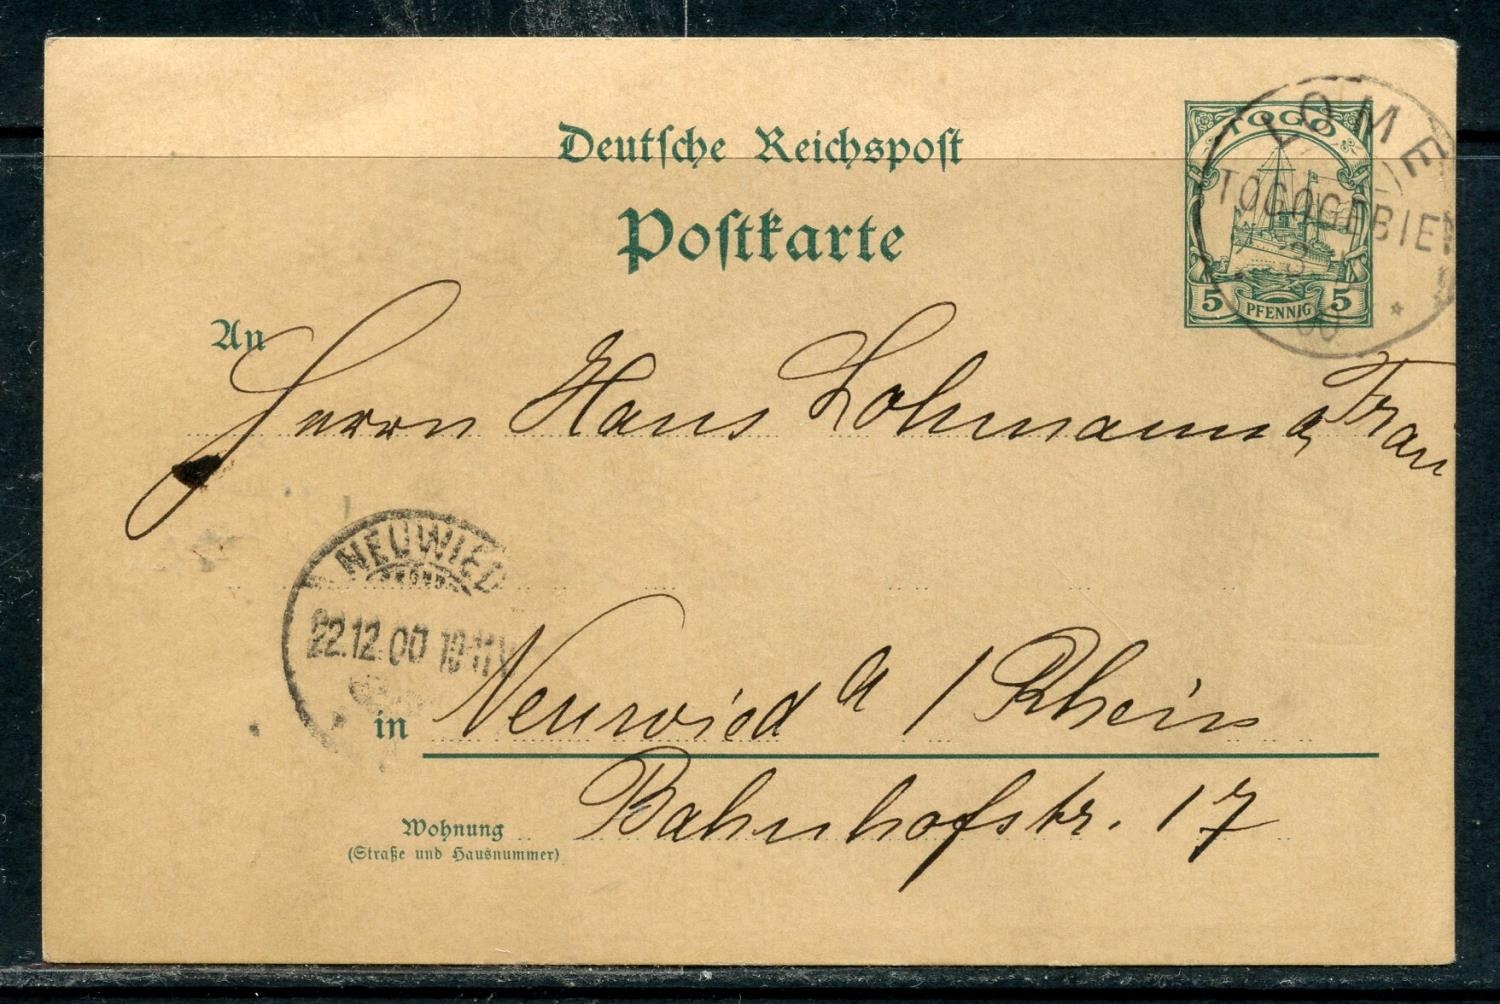 Deutsche Reichspost
Postkarte
TOGO
5 PFENNIG 5
LOME
TOGOGEBIET
00
An
Herrn Hans Lohmann & Frau
NEUWIED
22.12.00
in Neuwied a / Rhein
Bahnhofstr. 17
Wohnung
(Straße und Hausnummer)